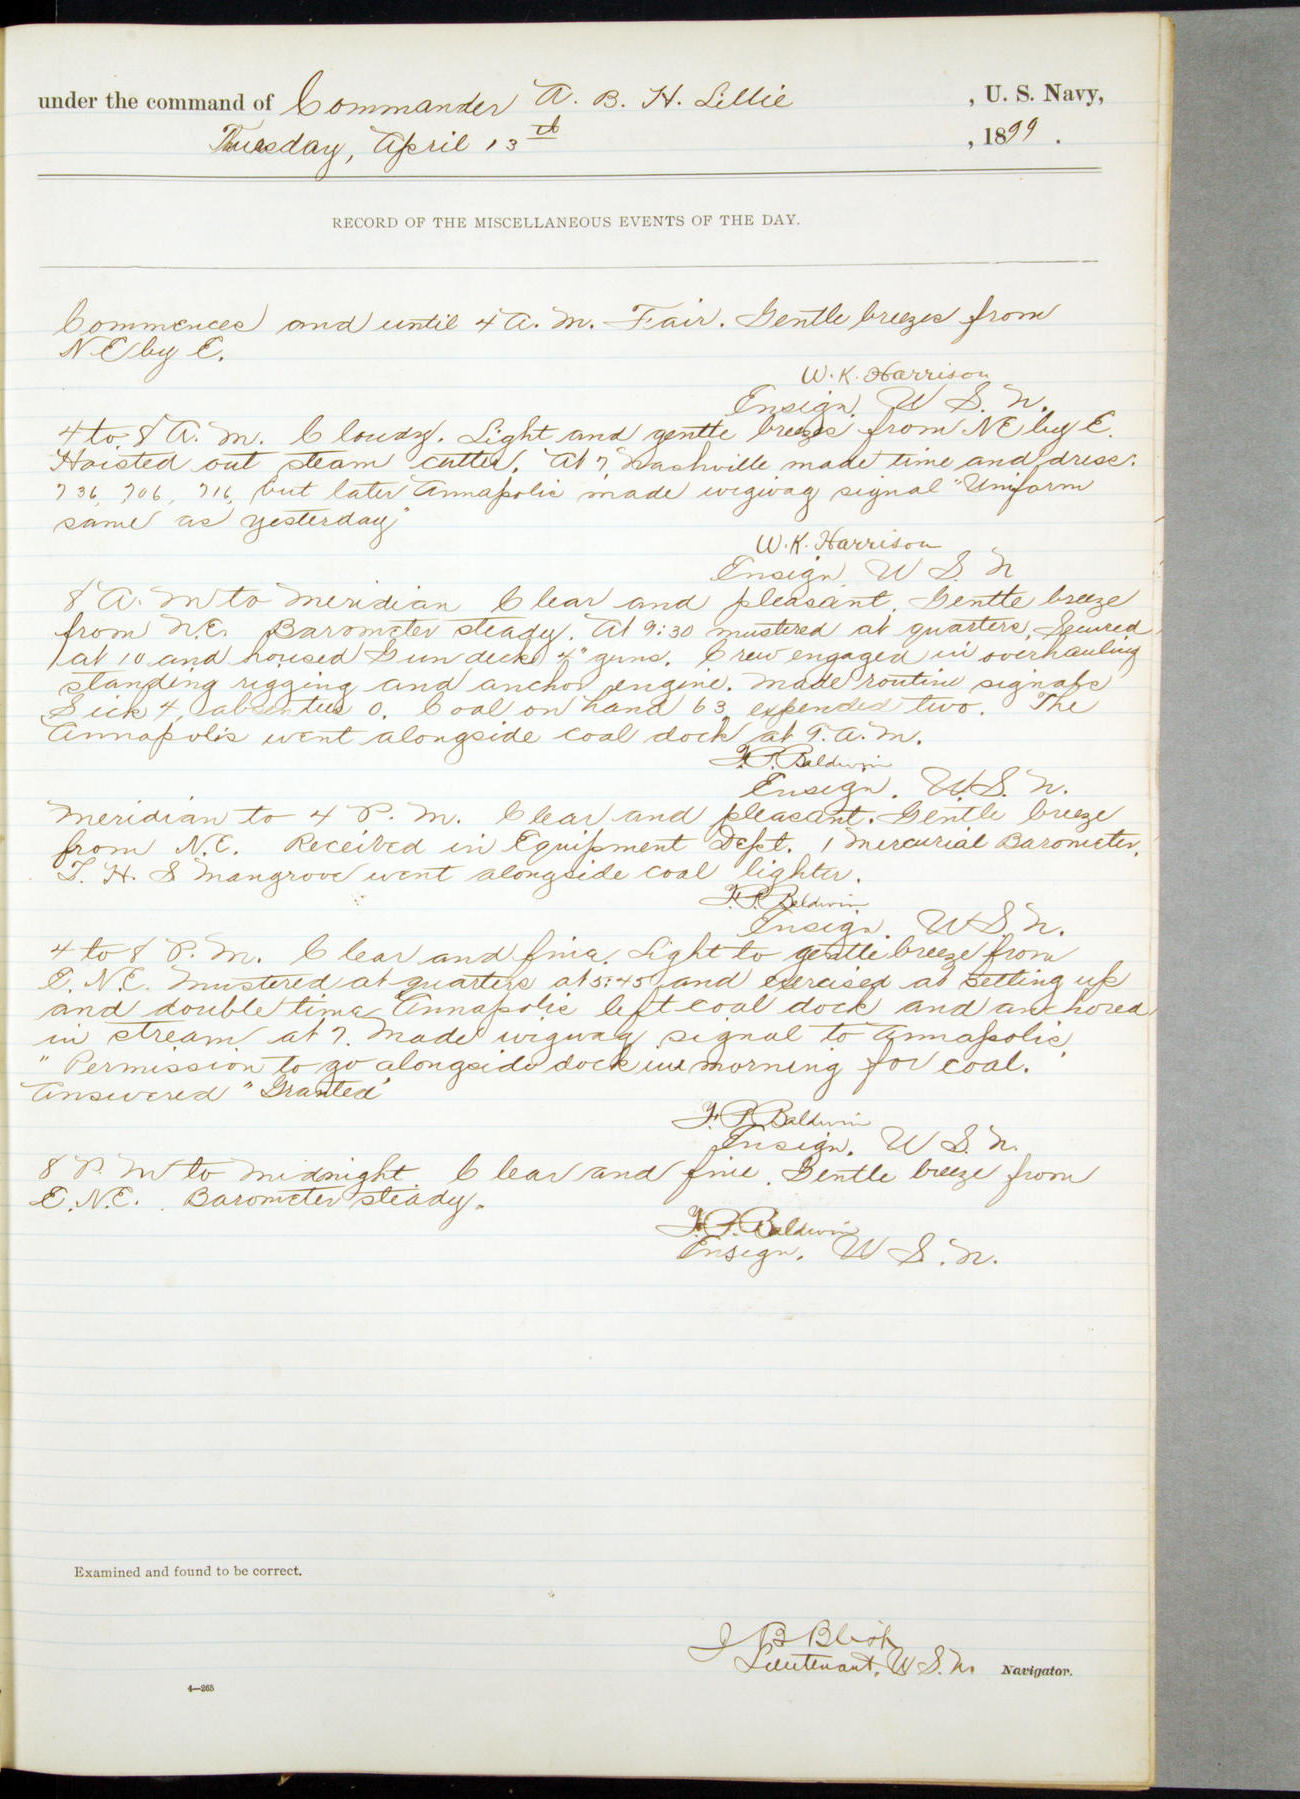 under the command of Commander A. B. H. Lillie , U. S. Navy,
Tuesday, April 13th , 1899 .
RECORD OF THE MISCELLANEOUS EVENTS OF THE DAY.
Commences and until 4 A. M. Fair. Gentle breezes from
N E by E.
W. K. Harrison
Ensign, U S. N.
4 to 8 A. M. Cloudy. Light and gentle breezes from N E by E.
Hoisted out steam cutter. At 7 Nashville made time and dress:
736, 706, 716, but later Annapolis made wigwag signal "Uniform
same as yesterday"
W. K. Harrison
Ensign, U S. N
8 A. M to Meridian Clear and pleasant. Gentle breeze
from N.E. Barometer steady. At 9:30 mustered at quarters. Secured
at 10 and housed Gun deck 4" guns. Crew engaged in overhauling
standing rigging and anchor engine. Made routine signals
Sick 4, absentees 0. Coal on hand 63, expended two. The
Annapolis went alongside coal dock at 9. A. M.
F. P. Baldwin
Ensign. U S. N.
Meridian to 4 P. M. Clear and pleasant. Gentle breeze
from N.E. Received in Equipment Dept. 1 Mercurial Barometer.
L. H. S Mangrove went alongside coal lighter.
F. P. Baldwin
Ensign. U S. N.
4 to 8 P. M. Clear and fine. Light to gentle breeze from
E. N.E. Mustered at quarters at 5:45 and exercised at setting up
and double time. Annapolis left coal dock and anchored
in stream at 7. Made wigwag signal to Annapolis,
"Permission to go alongside dock in morning for coal.
Answered "Granted"
F. P. Baldwin
Ensign. U S. N.
8 P. M to Midnight. Clear and fine. Gentle breeze from
E. N.E. Barometer steady.
F. P. Baldwin
Ensign. U S. N.
Examined and found to be correct.
J B Blish
Lieutenant, U S. N. Navigator.
4—265